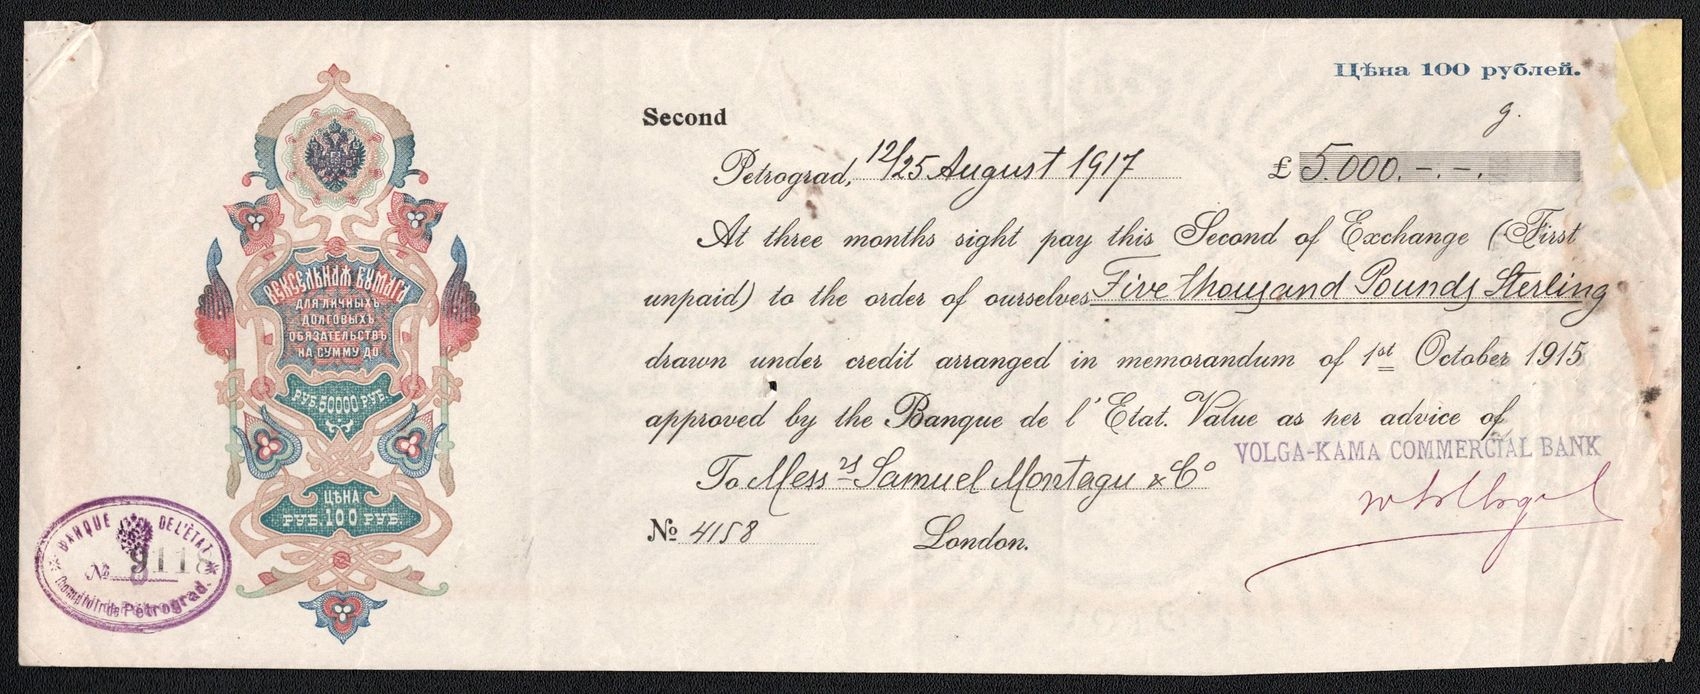 Цѣна 100 рублей.
Second
g.
Petrograd, 12/25 August 1917 £ 5.000.-.-.
At three months sight pay this Second of Exchange (First
unpaid) to the order of ourselves Five thousand Pounds Sterling
drawn under credit arranged in memorandum of 1st October 1915
approved by the Banque de l'Etat. Value as per advice of
VOLGA-KAMA COMMERCIAL BANK
To Messrs Samuel Montagu & Co
№ 4158 London.
ВЕКСЕЛЬНАЯ БУМАГА
ДЛЯ ЛИЧНЫХЪ
ДОЛГОВЫХЪ
ОБЯЗАТЕЛЬСТВЪ
НА СУММУ ДО
РУБ. 50000 РУБ.
ЦѢНА
РУБ. 100 РУБ.
BANQUE DE L'ÉTAT
№ 9118
Comptoir de Pétrograd.